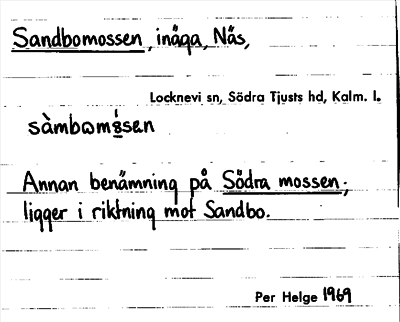 Sandbomossen, inäga, Näs,
Locknevi sn, Södra Tjusts hd, Kalm. l.
Annan benämning på Södra mossen;
ligger i riktning mot Sandbo.
Per Helge 1969